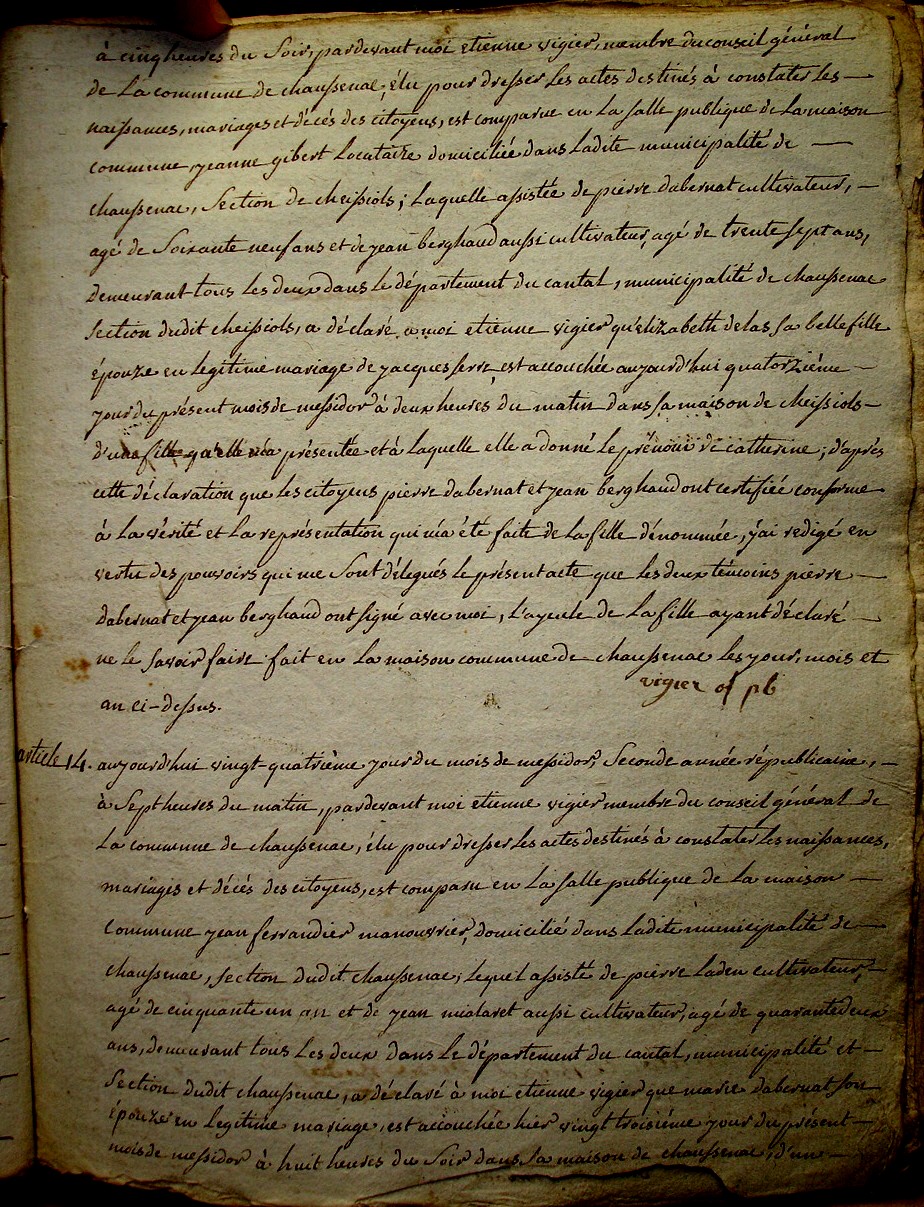 à cinq heures du Soir, pardevant moi etienne vigier, membre du conseil général
de La commune de chaussenac, élu pour dresser les actes destinés à constater les —
naissances, mariages et décés des citoyens, est comparue en La salle publique de La maison
commune, jeanne gibert Locataire domiciliée dans Ladite municipalité de —
chaussenac, Section de cheissiols; Laquelle assistée de pierre dabernat cultivateur, —
agé de Soixante neuf ans et de jean berghaud aussi cultivateur, agé de trente sept ans,
demeurant tous Les deux dans Le département du cantal, municipalité de chaussenac
Section dudit cheissiols, a déclaré à moi etienne vigier qu'elizabeth delas sa belle fille
épouze en Legitime mariage de jacques serre, est accouchée aujourd'hui quatorziéme —
jour du présent mois de messidor à deux heures du matin dans sa maison de cheissiols —
d'une fille qu'elle m'a présentée et à Laquelle elle a donné Le prénom de catherine; d'après
cette déclaration que Les citoyens pierre dabernat et jean berghaud ont certifiée conforme
à La vérité et La représentation qui m'a été faite de La fille dénommée, j'ai redigé en
vertu des pouvoirs qui me Sont délegués Le présent acte que Les deux témoins pierre —
dabernat et jean berghaud ont signé avec moi, L'ayeule de La fille ayant déclaré —
ne le Savoir faire. fait en La maison commune de chaussenac Les jour, mois et
an ci-dessus.
vigier of pb
article 14. aujourd'hui vingt-quatrième jour du mois de messidor, Seconde année républicaine, —
à Sept heures du matin, pardevant moi etienne vigier membre du conseil général de
La commune de chaussenac, élu pour dresser Les actes destinés à constater Les naissances,
mariages et décés des citoyens, est comparu en La salle publique de La maison —
Commune jean ferrandier manouvrier, domicilié dans Ladite municipalité de —
chaussenac, section dudit chaussenac; Lequel assisté de pierre Laden cultivateur, —
agé de cinquante un an et de jean mialaret aussi cultivateur, agé de quarante deux
ans, demeurant tous Les deux dans Le département du cantal, municipalité et —
Section dudit chaussenac, a déclaré à moi etienne vigier que marie dabernat son
épouze en Legitime mariage, est accouchée hier vingt troisiéme jour du présent —
mois de messidor à huit heures du Soir dans Sa maison de chaussenac, d'un —